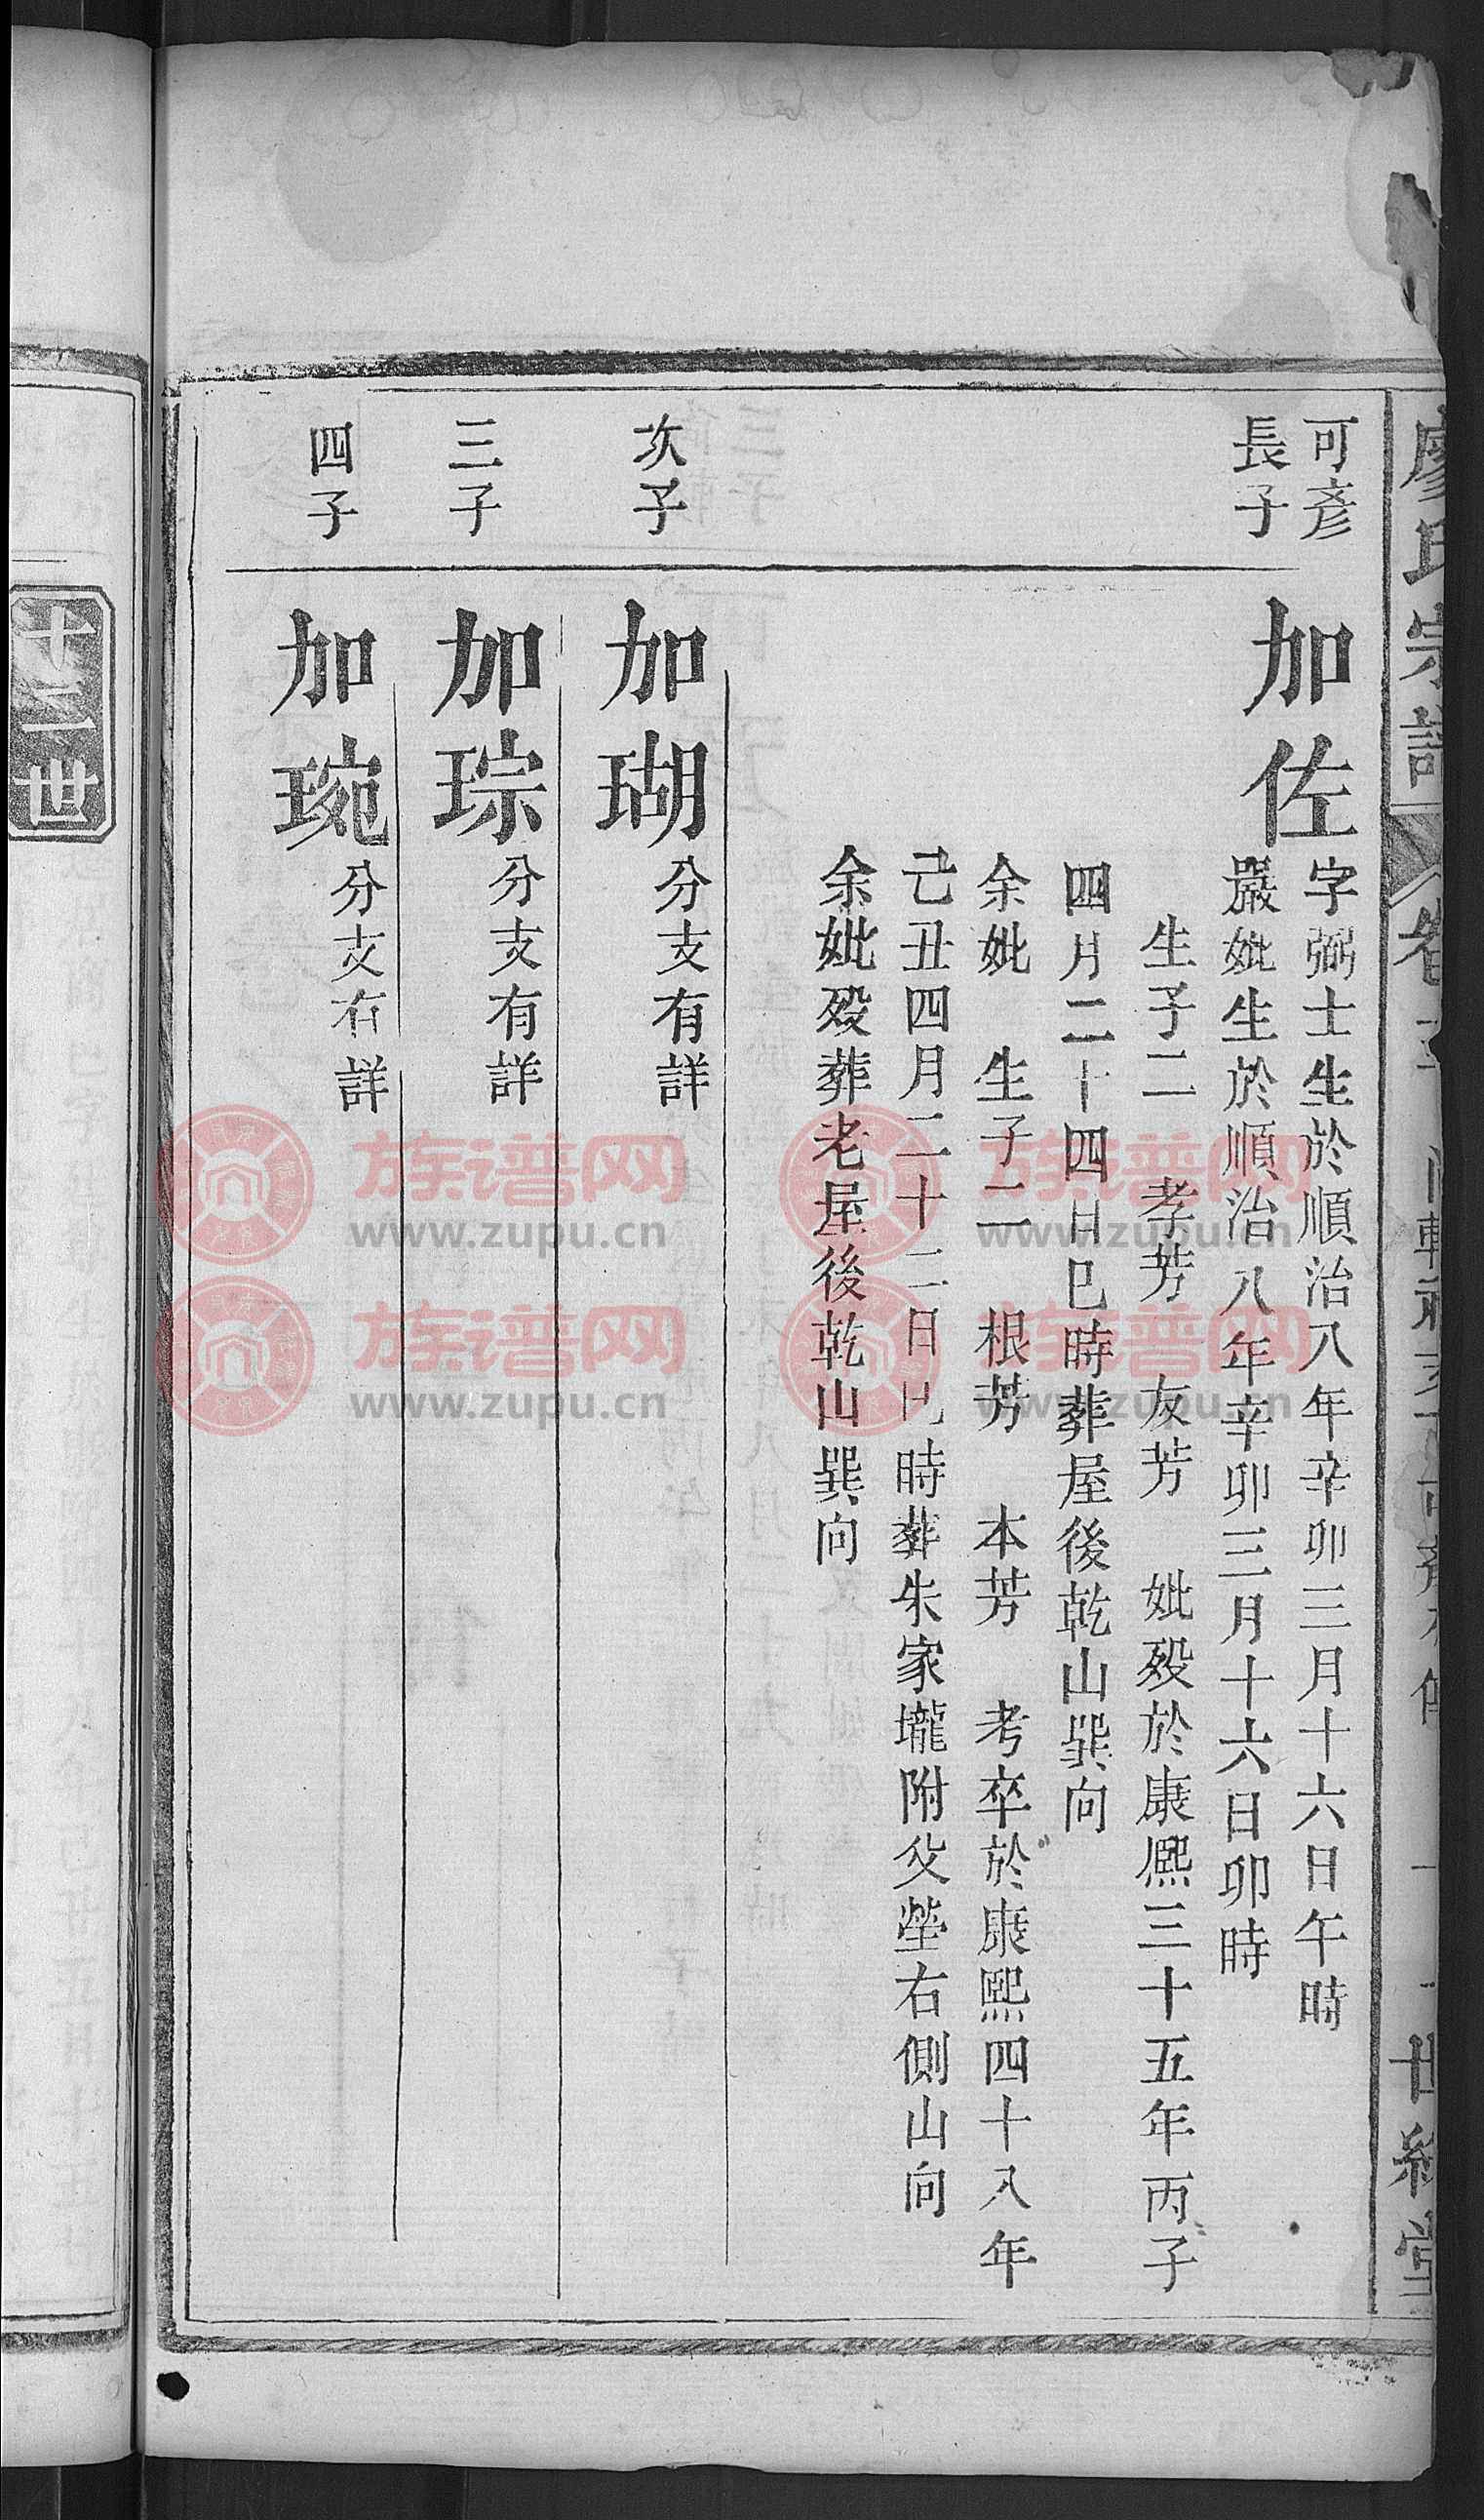 廖氏宗譜
世綵堂
可彥
長子
加佐
字弼士生於順治八年辛卯三月十六日午時
嚴妣生於順治八年辛卯三月十六日卯時
生子二 孝芳 友芳 妣殁於康熈三十五年丙子
四月二十四日巳時葬屋後乾山巽向
余妣 生子二 根芳 本芳 考卒於康熙四十八年
己丑四月二十二日巳時葬朱家壠附父塋右側山向
余妣殁葬老屋後乾山巽向
次子
加瑚
分支有詳
三子
加琮
分支有詳
四子
加琬
分支有詳
十二世
族谱网
www.zupu.cn
族谱网
www.zupu.cn
族谱网
www.zupu.cn
族谱网
www.zupu.cn